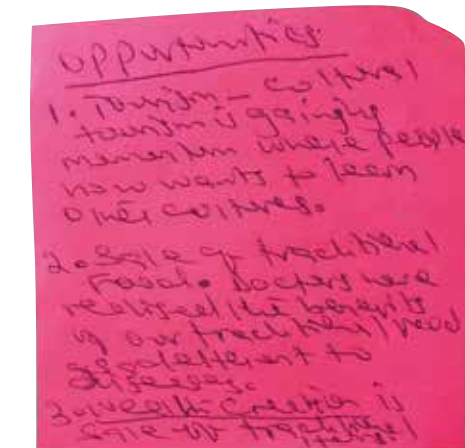 opportunities
1. Tourism - cultural
tourism is gaining
momentum where people
now wants to learn
other cultures.
2. Sale of traditional
Food. Doctors have
realised the benefits
of our traditional food
as deterrent to
diseases.
3. wealth creation is
sale of traditional